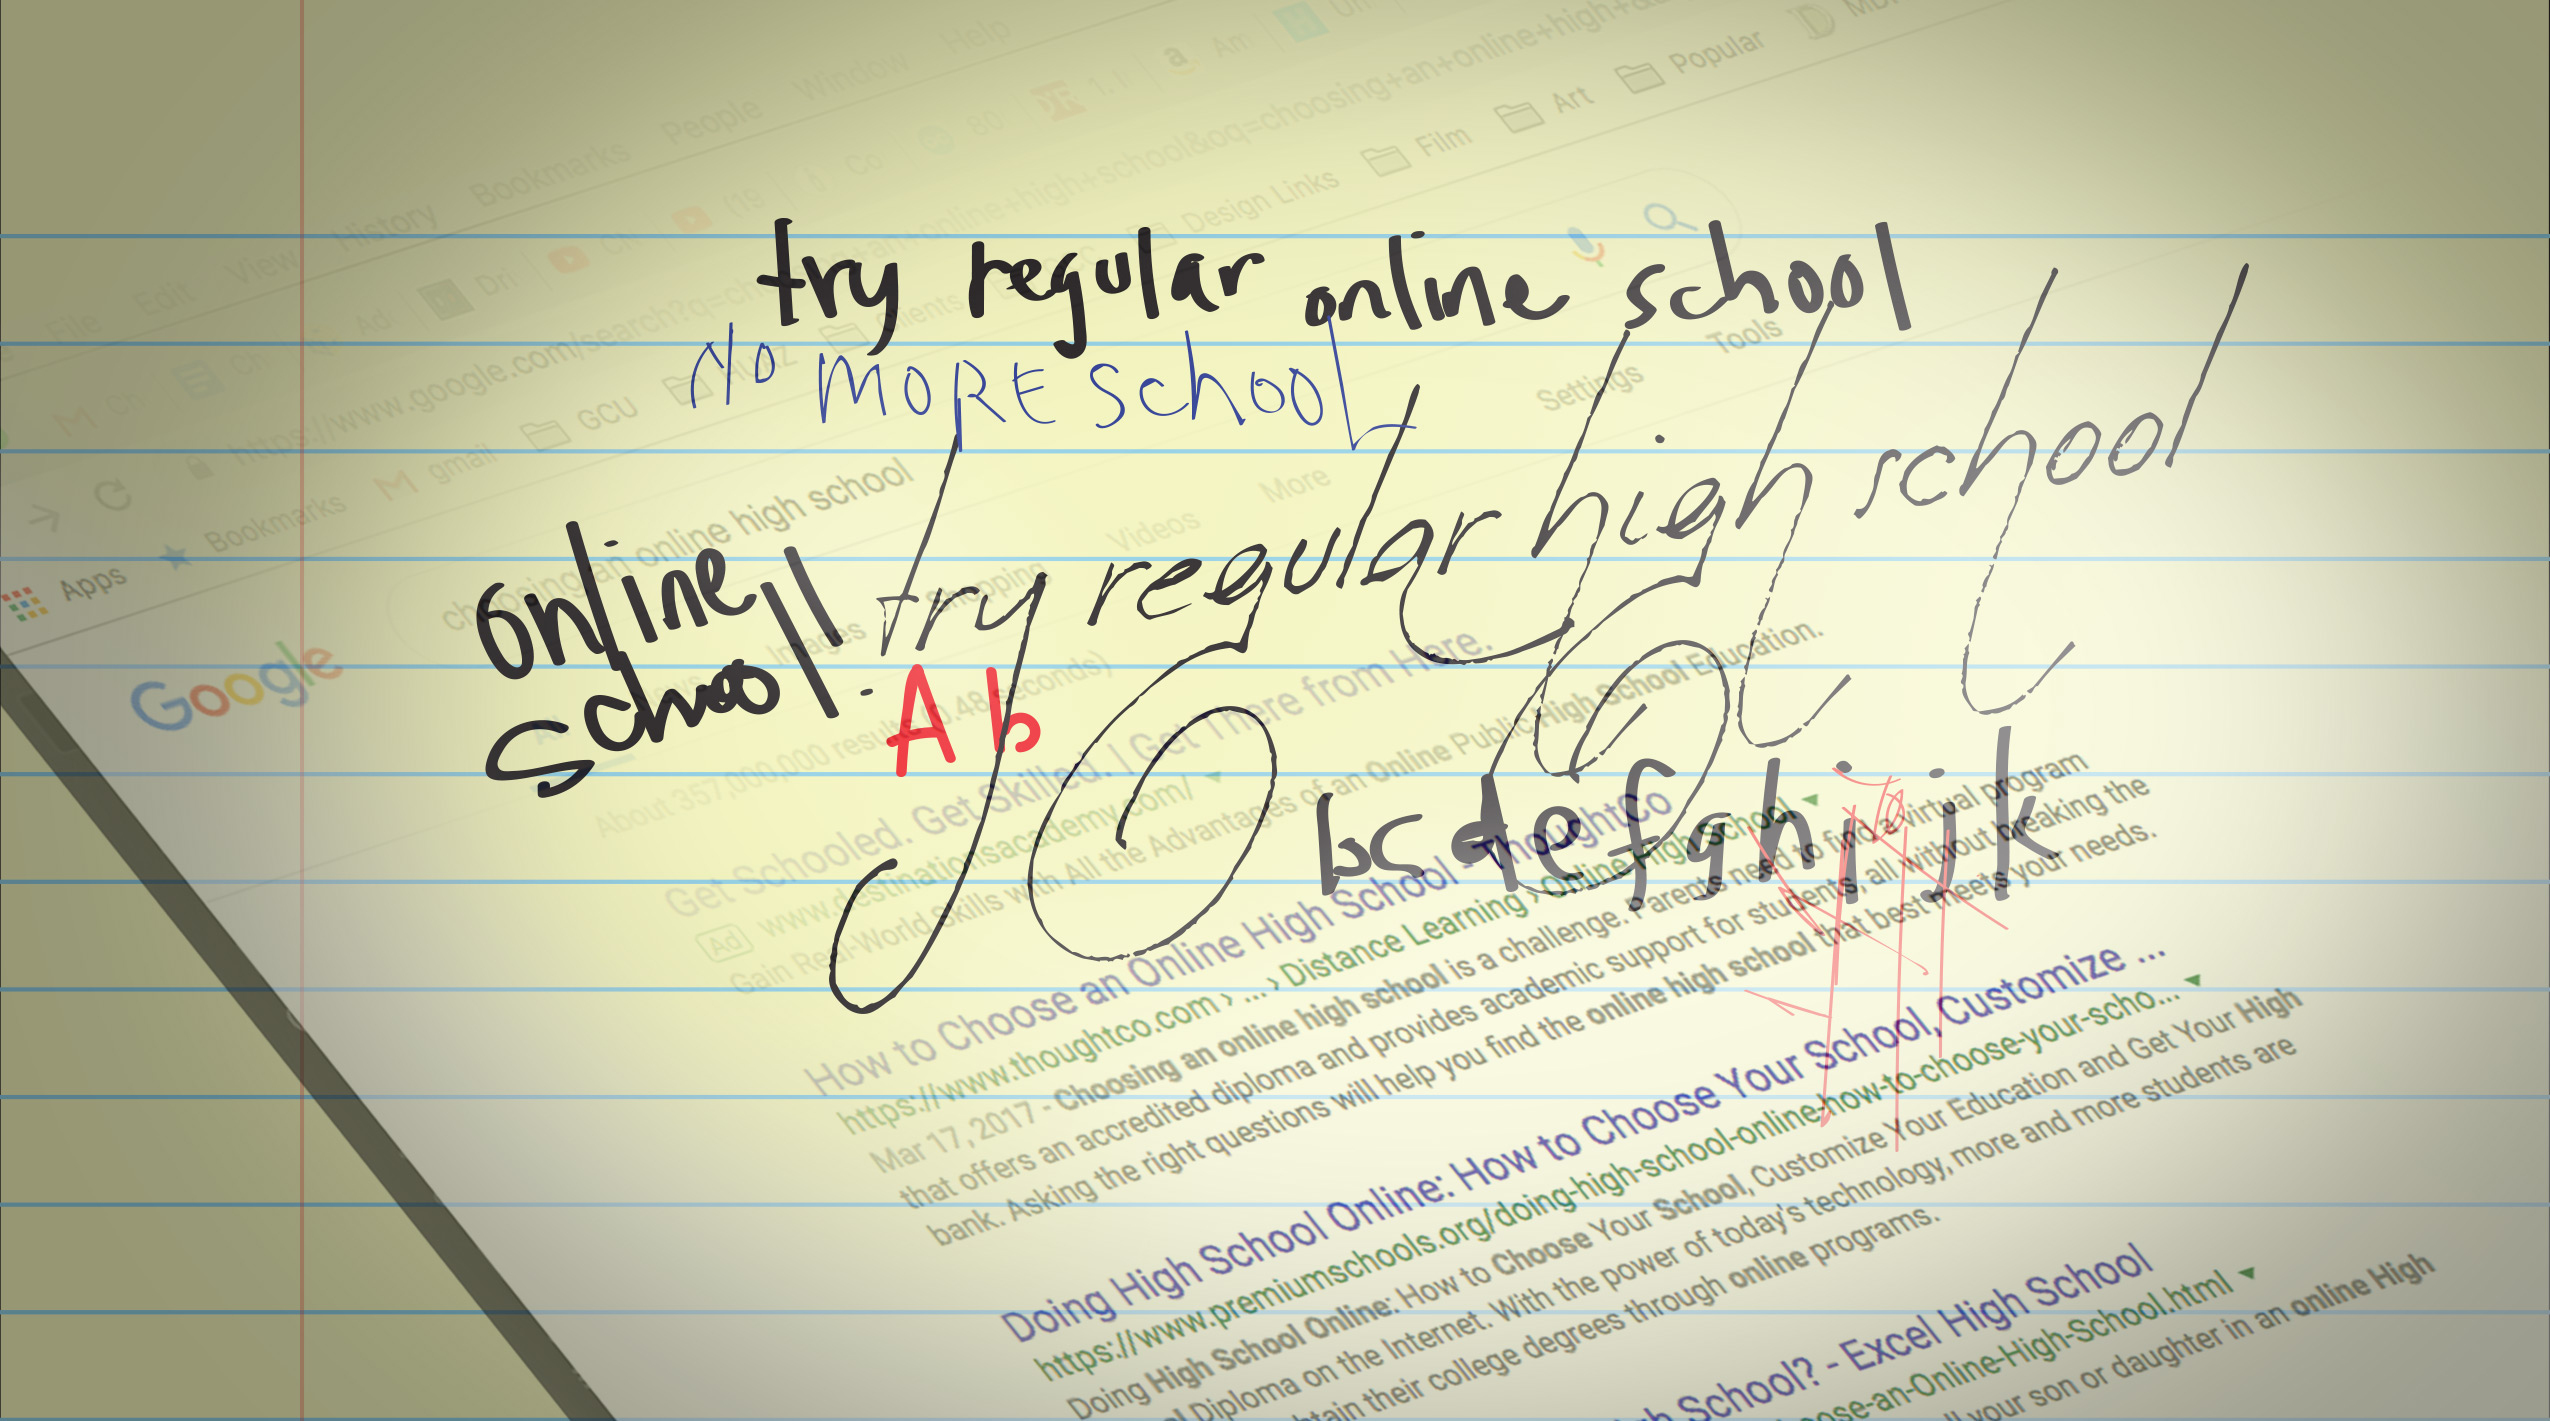 File Edit View History Bookmarks People Window Help
https://www.google.com/search?q=
Apps Bookmarks gmail GCU Clients Design Links Film Art Popular
Google choosing an online high school
Images Shopping Videos More Settings Tools
About 357,000,000 results (0.48 seconds)
try regular online school
No MORE School
online
school
try regular high school
Ab
bcdefghijk
Get Schooled. Get Skilled. | Get There from Here.
Ad www.destinationsacademy.com/
Gain Real-World Skills with All the Advantages of an Online Public High School Education.
How to Choose an Online High School - ThoughtCo
https://www.thoughtco.com › ... › Distance Learning › Online High School
Mar 17, 2017 - Choosing an online high school is a challenge. Parents need to find a virtual program
that offers an accredited diploma and provides academic support for students, all without breaking the
bank. Asking the right questions will help you find the online high school that best meets your needs.
Doing High School Online: How to Choose Your School, Customize ...
https://www.premiumschools.org/doing-high-school-online-how-to-choose-your-scho...
Doing High School Online: How to Choose Your School, Customize Your Education and Get Your High
Diploma on the Internet. With the power of today's technology, more and more students are
their college degrees through online programs.
School? - Excel High School
-an-Online-High-School.html
your son or daughter in an online High